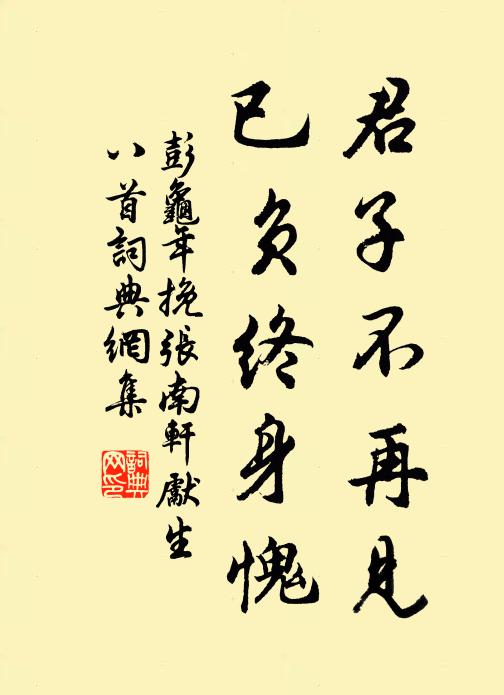 君子不再見
已負終身愧
彭龜年挽張南軒獻生
八首詞典網集
詞典网印